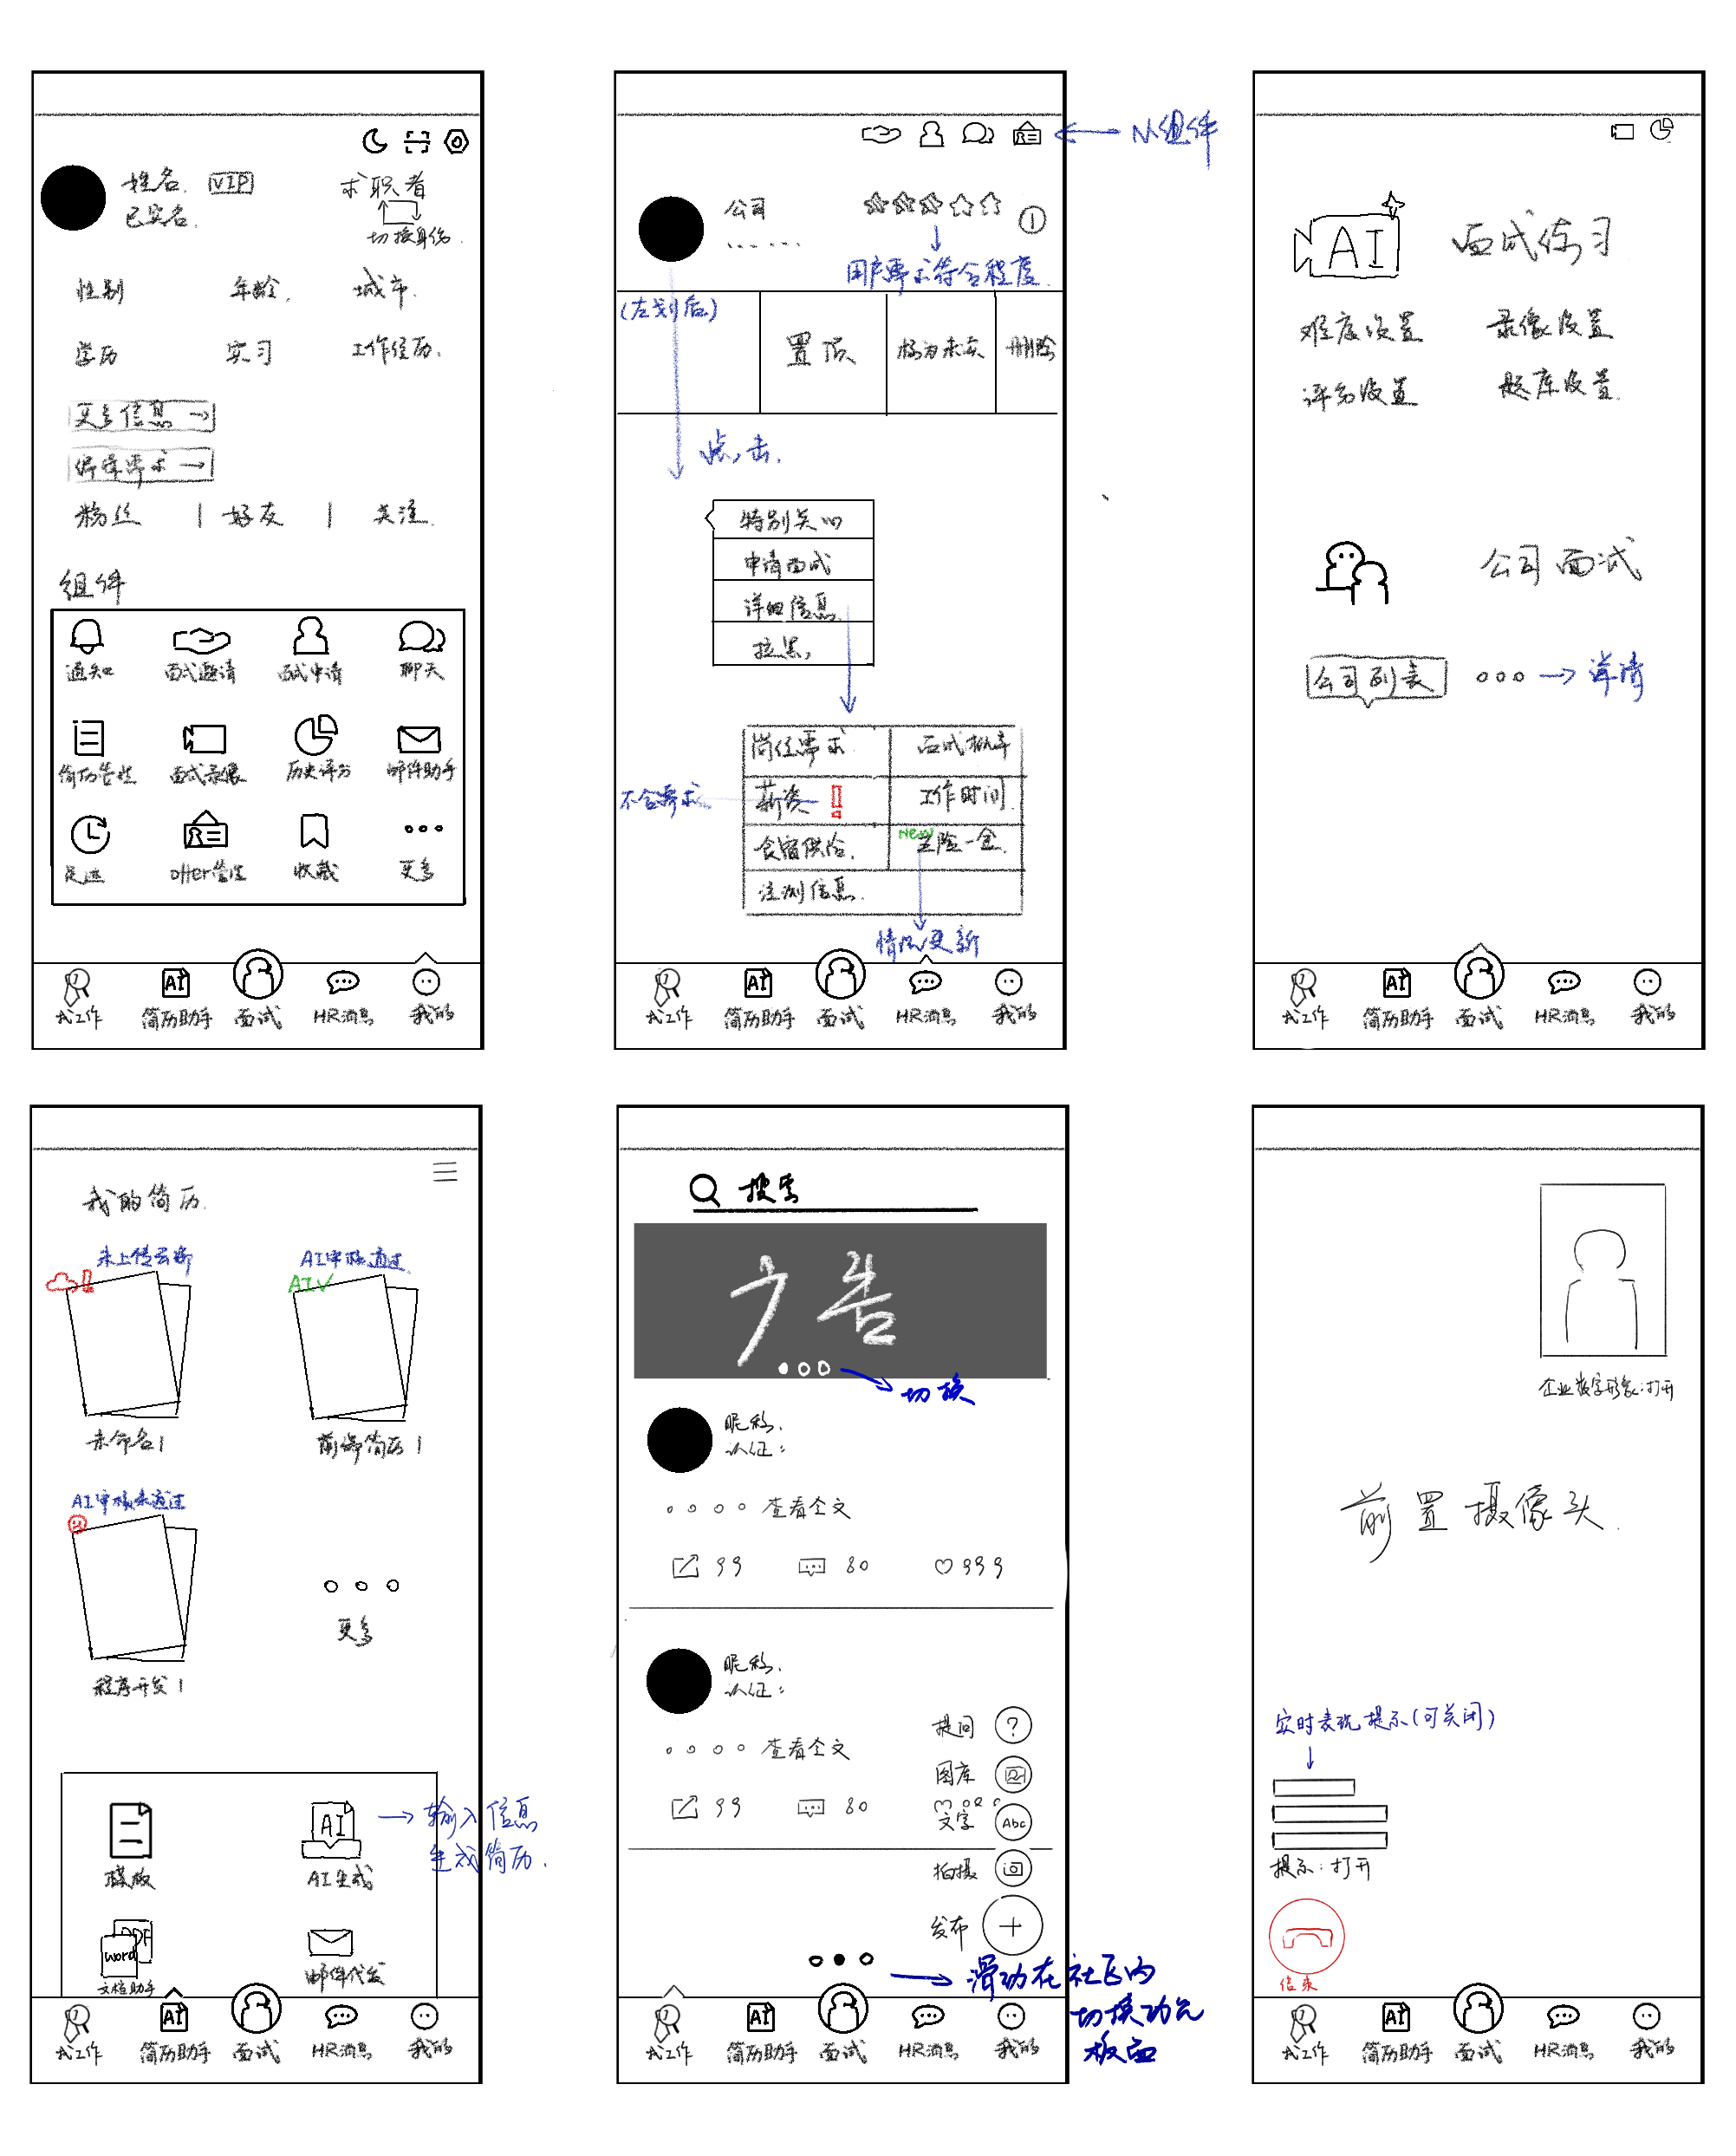 姓名. VIP 求职者
已实名.
切换身份.
性别 年龄. 城市.
学历 实习 工作经历.
更多信息 →
选择要求 →
粉丝 | 好友 | 关注.
组件
通知 面试邀请 面试申请 聊天
简历管理 面试录像 历史评分 邮件助手
足迹 offer管理 收藏 更多
找工作 简历助手 面试 HR消息 我的
小组件
公司
用户要求符合程度.
(左划后)
置顶 标为未读 删除
点击.
特别关心
申请面试
详细信息
拉黑
岗位要求 面试概率
不合要求 薪资 ! 工作时间
食宿供给. New 五险一金
注测信息.
情况更新
找工作 简历助手 面试 HR消息 我的
AI 面试练习
难度设置 录像设置
评分设置 题库设置
公司面试
公司列表 ○○○ → 详情
找工作 简历助手 面试 HR消息 我的
我的简历.
未上传云端 AI审核通过
AI✓
未命名1 前端简历1
AI审核未通过
更多
程序开发1
AI → 输入信息
生成简历.
模版 AI生成
PDF
Word
文档助手 邮件代发
找工作 简历助手 面试 HR消息 我的
搜索
广告
切换
昵称.
认证:
○○○○ 查看全文
99 80 999
昵称.
认证:
提问 ?
○○○○ 查看全文
图库
99 80
文字 Abc
拍摄
发布 +
→ 滑动在社区内
切换功能
板面
找工作 简历助手 面试 HR消息 我的
企业数字形象:打开
前置摄像头.
实时表现提示(可关闭)
提示:打开
结束
找工作 简历助手 面试 HR消息 我的